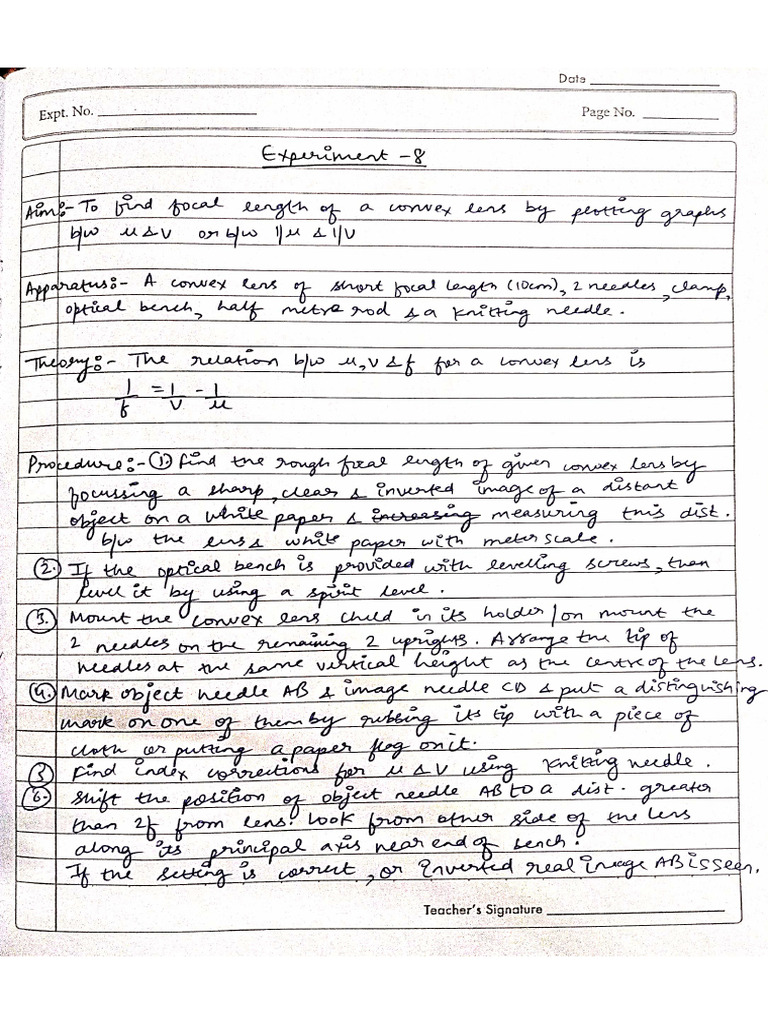 Date
Expt. No.
Page No.
Experiment - 8
Aim:- To find focal length of a convex lens by plotting graphs
b/w u & v or b/w 1/u & 1/v
Apparatus:- A convex lens of short focal length (10cm), 2 needles, clamp,
optical bench, half metre rod & a knitting needle.
Theory:- The relation b/w u, v & f for a convex lens is
1/f = 1/v - 1/u
Procedure:- (1.) Find the rough focal length of given convex lens by
focussing a sharp, clear & inverted image of a distant
object on a white paper & increasing measuring this dist.
b/w the lens & white paper with meter scale.
(2.) If the optical bench is provided with levelling screws, then
level it by using a spirit level.
(3.) Mount the convex lens child in its holder/on mount the
2 needles on the remaining 2 uprights. Arrange the tip of
needles at the same vertical height as the centre of the lens.
(4.) Mark object needle AB & image needle CD & put a distinguishing
mark on one of them by rubbing its tip with a piece of
cloth or putting a paper flag on it.
(5) Find index corrections for u & v using knitting needle.
(6.) Shift the position of object needle AB to a dist. greater
than 2f from lens. Look from other side of the lens
along its principal axis near end of bench.
If the setting is correct, or inverted real image AB is seen.
Teacher's Signature